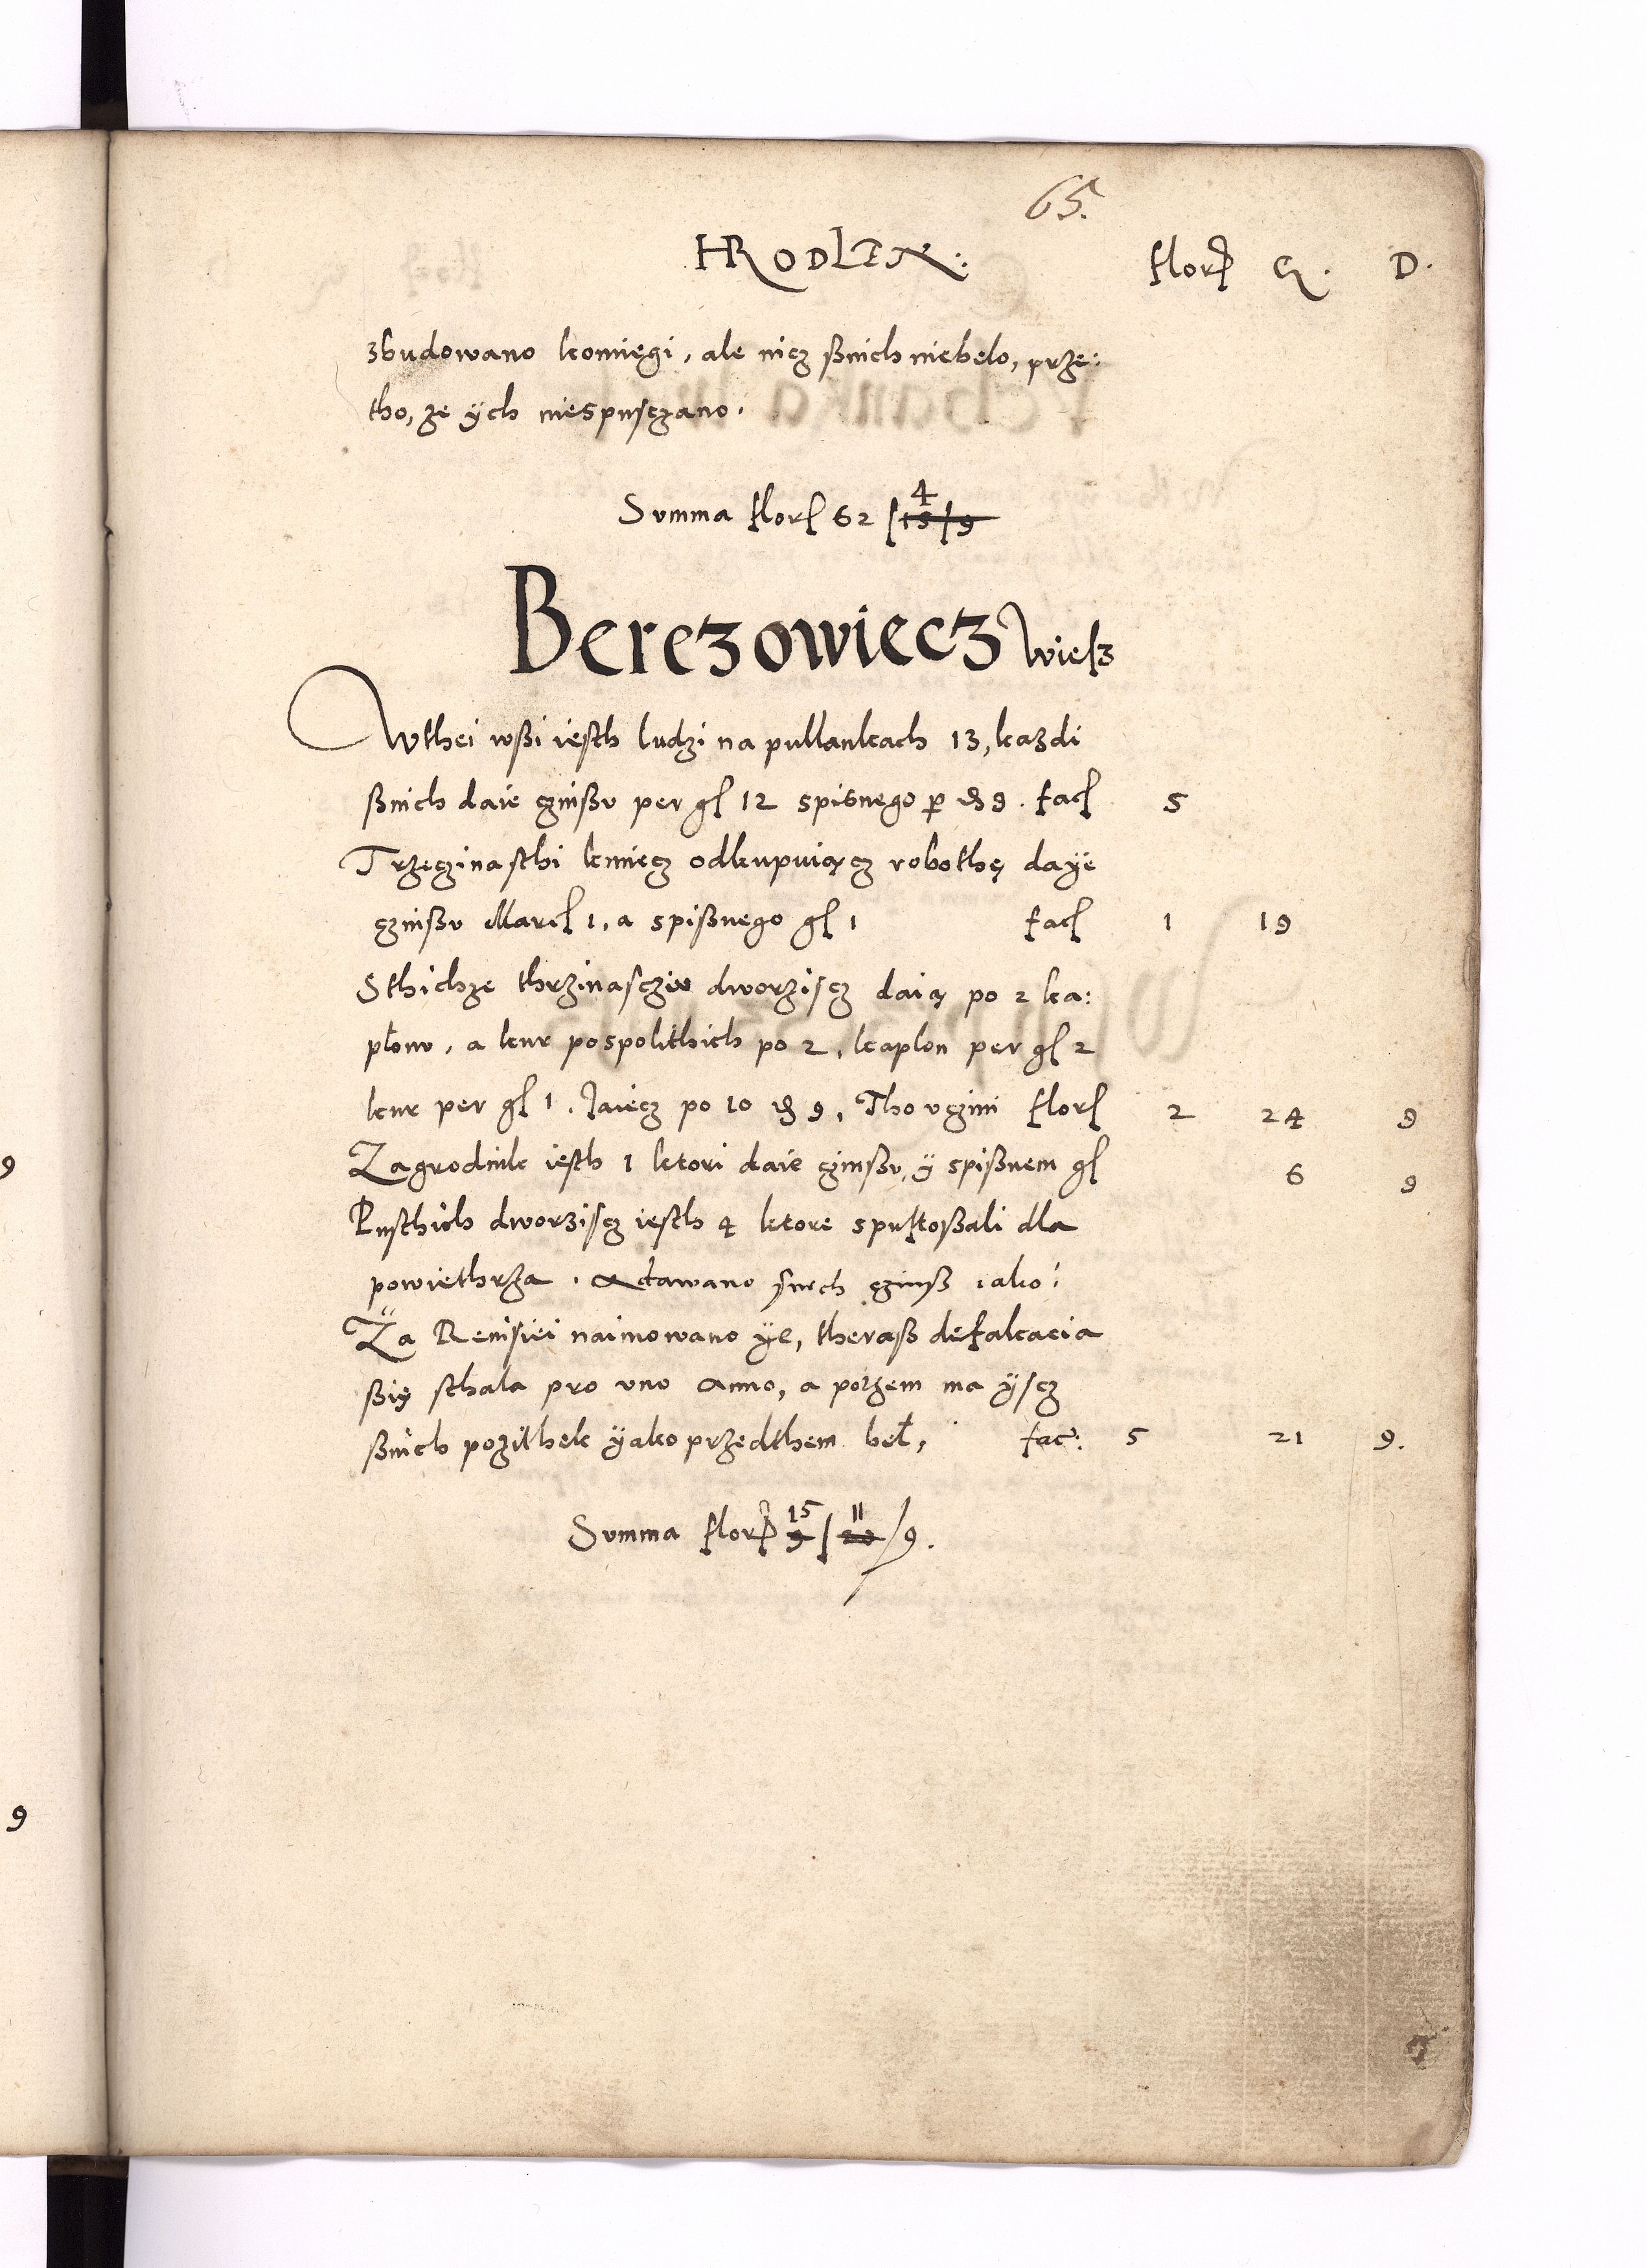 65.
HRODLENS: florß G. D.
zbudowano komięgi, ale nicz ßnich niebelo, prze:
tho, ze ÿch niespusczano.
Summa florß 62 / 4 15 / 9
Berezowiecz wiesz
Wthei wßi iesth ludzi na pullankach 13, kazdi
ßnich daie czinßu per gß 12 spisnego per đ 9. facß 5
Trzeczinasthi kmiecz odkupuiącz robothę dayë
czinßu Marcß 1, a spißnego gß 1 facß 1 19
Sthichze thrzinasczie dworziscz daią po 2 ka:
płonu, a kur pospolithich po 2, kaplon per gß 2
kur per gß 1. Jaiecz po 10 đ 9, Tho uczini florß 2 24 9
Zagrodnik iesth 1 ktori daie czinßu, ÿ spißnem gß 6 9
Pusthich dworziscz iesth 4 ktore spustoßali dla
powiethrza. A dawano snich czinß iako:
Za Remisiei naimowano ÿe, theraß defalcacia
ßię sthala pro uno Anno, a pothem ma ÿscz
ßnich pozithek ÿako przedthem beł, fac: 5 21 9.
Summa florß 15 9 / 11 20 / 9.
9
9